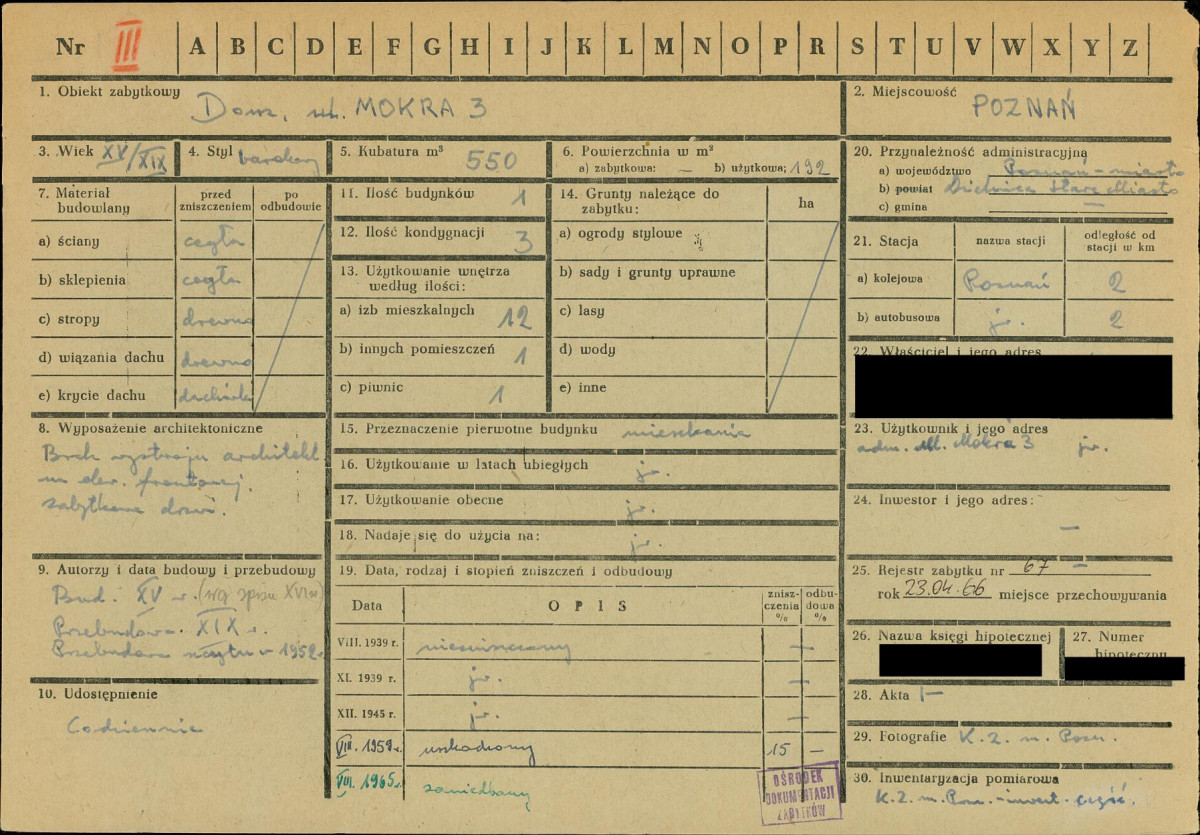 Nr III A B C D E F G H I J K L M N O P R S T U V W X Y Z
1. Obiekt zabytkowy
Dom, ul. MOKRA 3
2. Miejscowość
POZNAŃ
3. Wiek XV/XIX
4. Styl barokowy
5. Kubatura m³ 550
6. Powierzchnia w m²
a) zabytkowa: — b) użytkowa: 192
7. Materiał budowlany
przed zniszczeniem
po odbudowie
a) ściany cegła
b) sklepienia cegła
c) stropy drewno
d) wiązania dachu drewno
e) krycie dachu dachówka
8. Wyposażenie architektoniczne
Brak wystroju architekt.
na elew. frontowej.
zabytkowe drzwi.
9. Autorzy i data budowy i przebudowy
Bud. XV w. (wg spisu XVI w)
Przebudowa XIX w.
Przebudowa szczytu w 1952 r.
10. Udostępnienie
Codziennie
11. Ilość budynków 1
12. Ilość kondygnacji 3
13. Użytkowanie wnętrza
według ilości:
a) izb mieszkalnych 12
b) innych pomieszczeń 1
c) piwnic 1
14. Grunty należące do
zabytku:
ha
a) ogrody stylowe
b) sady i grunty uprawne
c) lasy
d) wody
e) inne
15. Przeznaczenie pierwotne budynku mieszkania
16. Użytkowanie w latach ubiegłych jw.
17. Użytkowanie obecne jw.
18. Nadaje się do użycia na: jw.
19. Data, rodzaj i stopień zniszczeń i odbudowy
Data
OPIS
znisz-
czenia
%
odbu-
dowa
%
VIII. 1939 r. niezniszczony —
XI. 1939 r. jw. —
XII. 1945 r. jw. —
VIII. 1959 r. uszkodzony 15 —
VIII. 1965 r. zaniedbany
OŚRODEK
DOKUMENTACJI
ZABYTKÓW
20. Przynależność administracyjna
a) województwo Poznań - miasto
b) powiat Dzielnica Stare Miasto
c) gmina —
21. Stacja
nazwa stacji
odległość od
stacji w km
a) kolejowa Poznań 2
b) autobusowa jw. 2
22. Właściciel i jego adres
23. Użytkownik i jego adres
adm. ul. Mokra 3 jw.
24. Inwestor i jego adres:
—
25. Rejestr zabytku nr 67 —
rok 23.04.66 miejsce przechowywania
26. Nazwa księgi hipotecznej
27. Numer
hipoteczny
28. Akta —
29. Fotografie K.Z. m. Pozn.
30. Inwentaryzacja pomiarowa
K.Z. m. Pozn. - inwent. część.